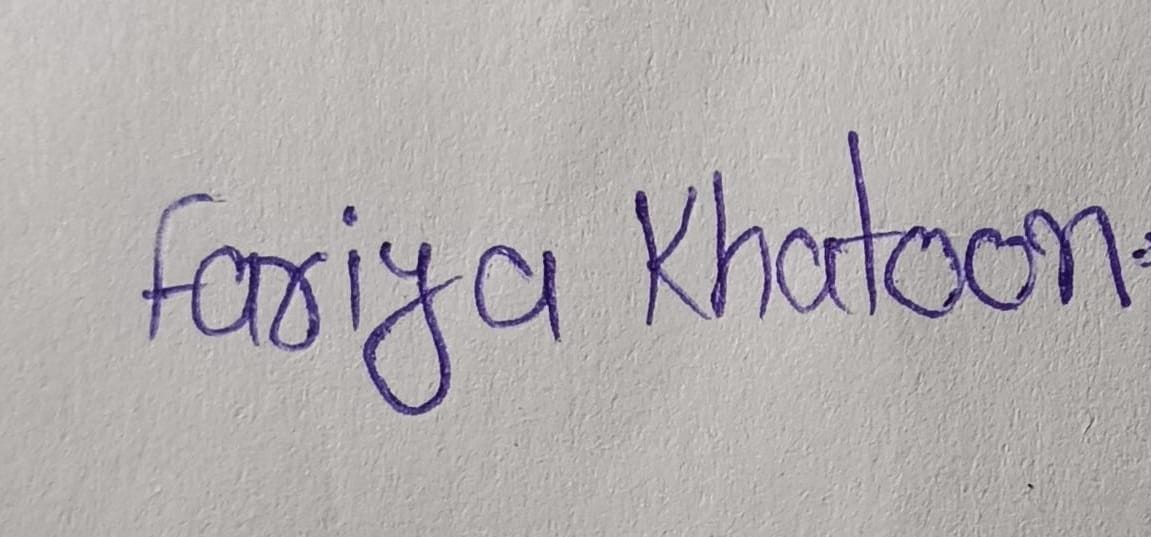 Fariya Khatoon.